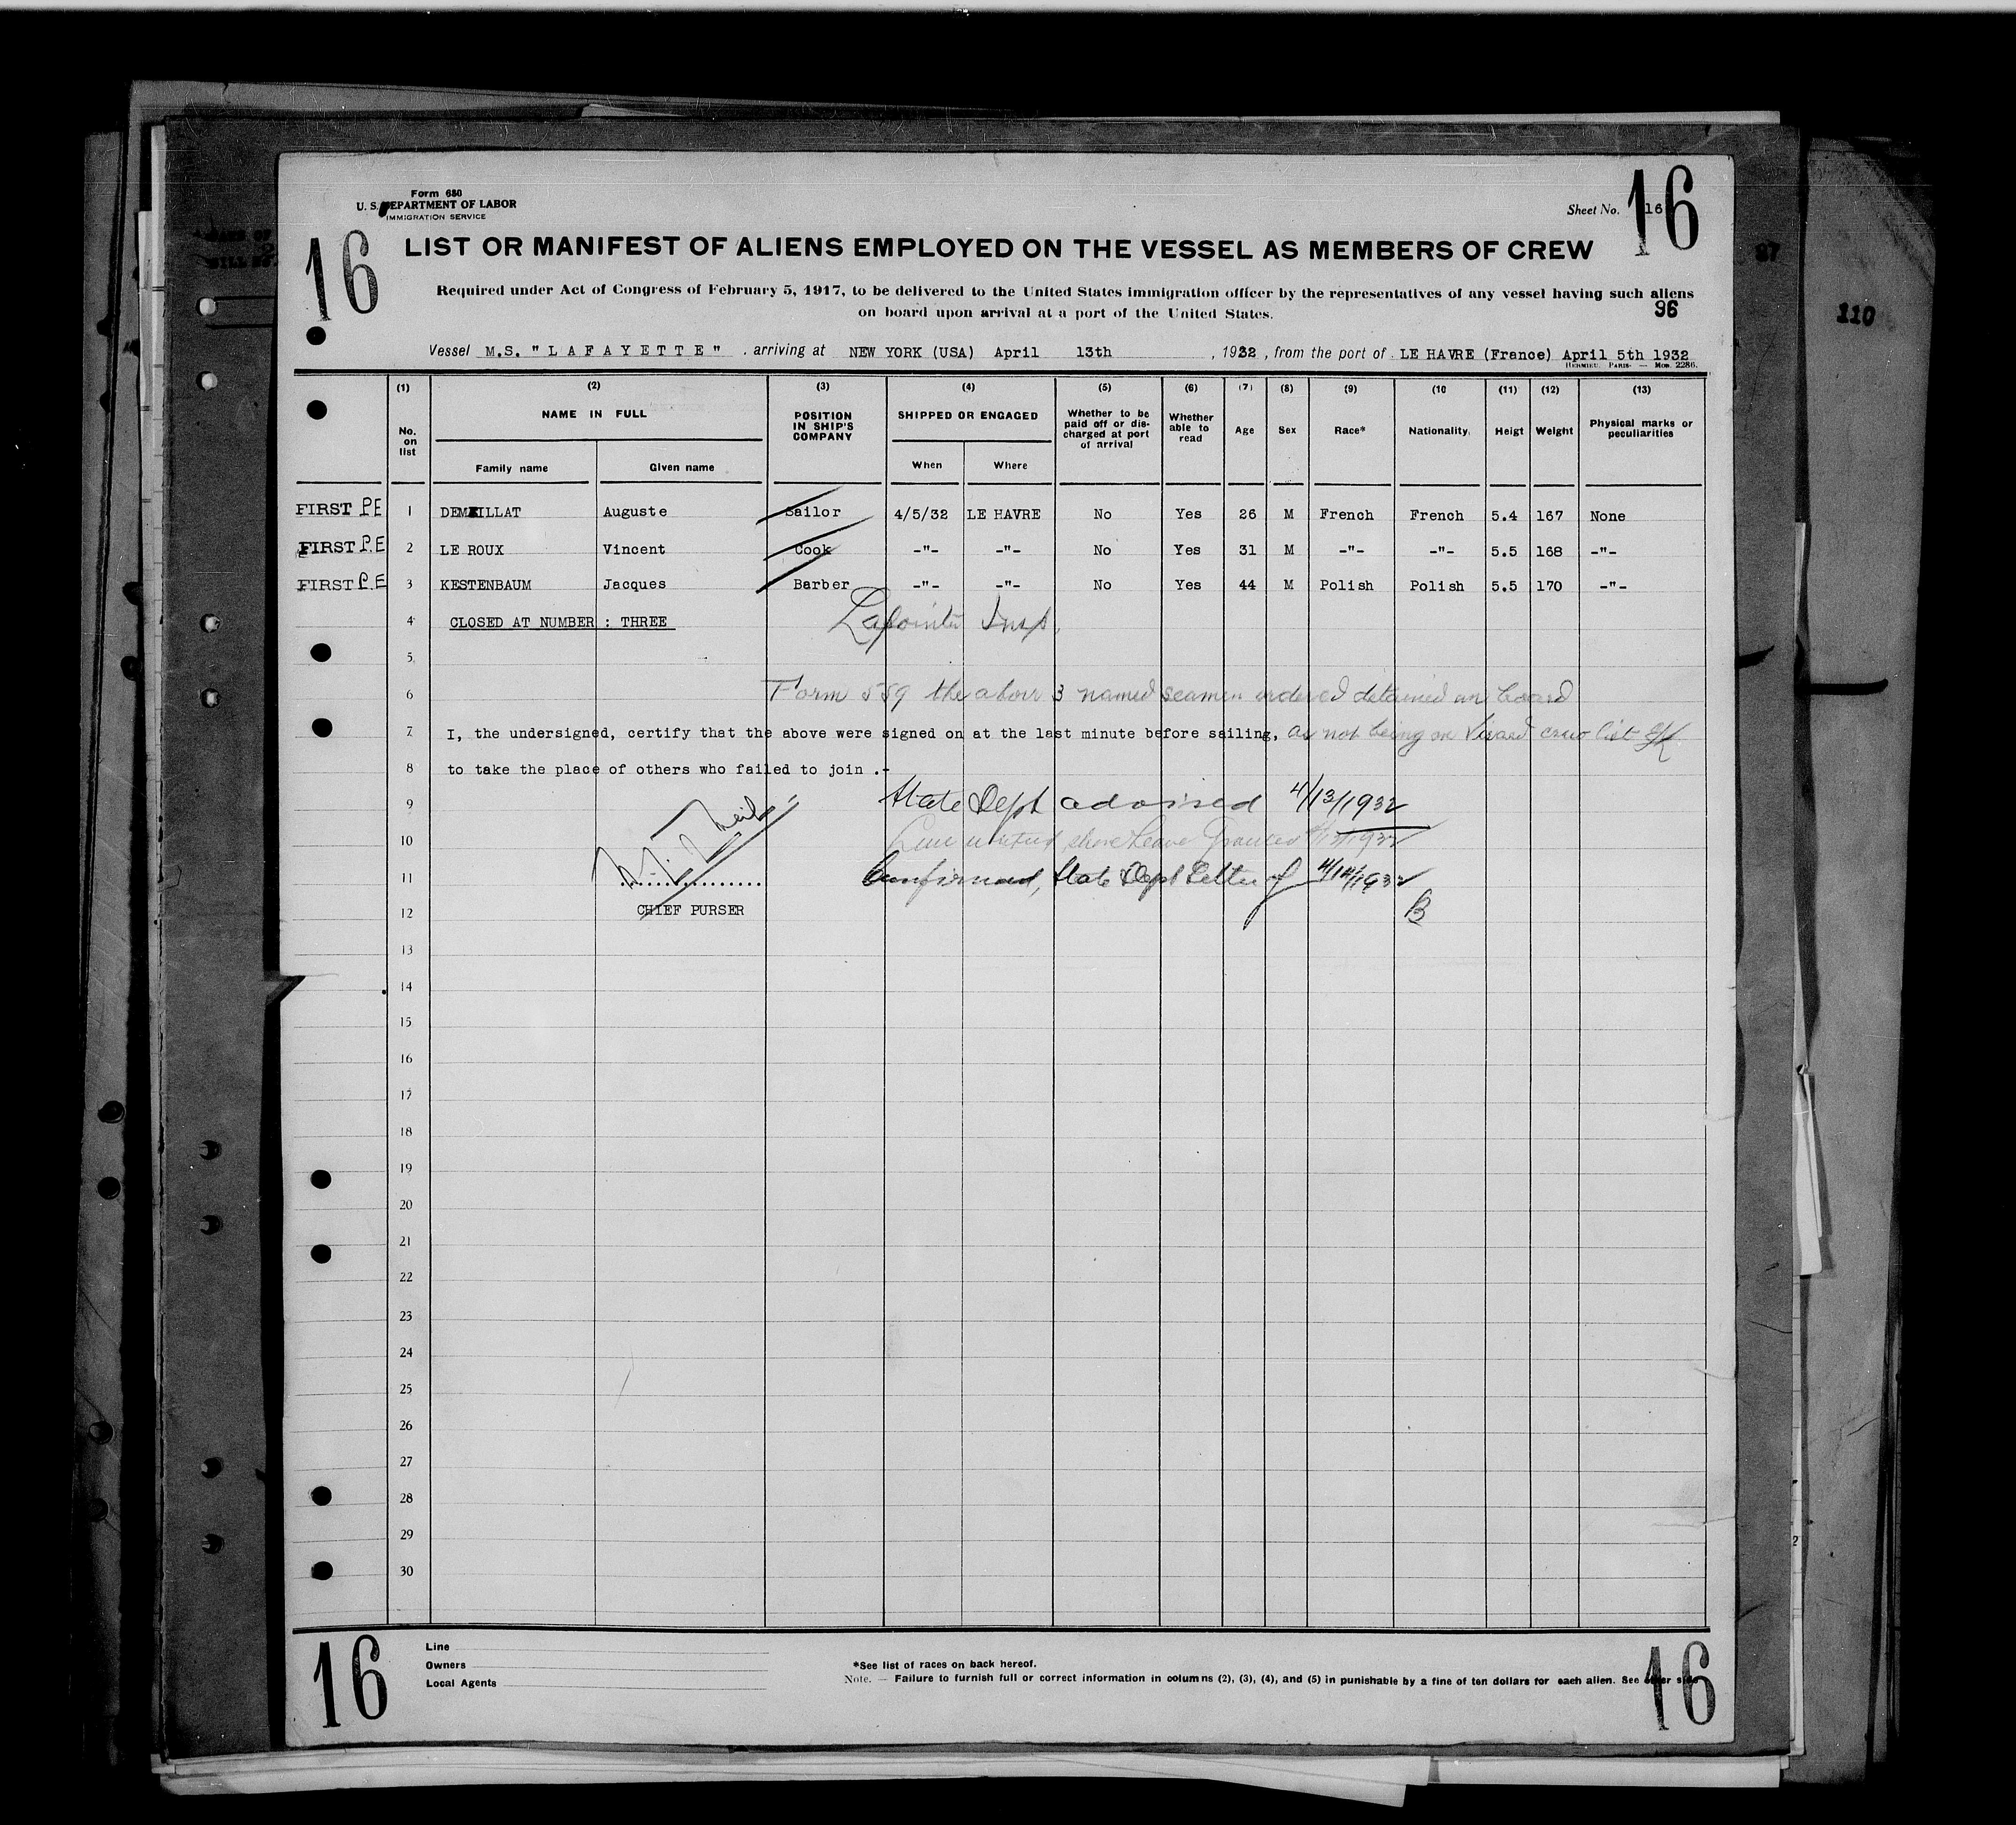 Form 680
U. S. DEPARTMENT OF LABOR
IMMIGRATION SERVICE
Sheet No. 16
16
16
LIST OR MANIFEST OF ALIENS EMPLOYED ON THE VESSEL AS MEMBERS OF CREW
Required under Act of Congress of February 5, 1917, to be delivered to the United States immigration officer by the representatives of any vessel having such aliens
on board upon arrival at a port of the United States.
96
110
87
Vessel M.S. "LAFAYETTE" , arriving at NEW YORK (USA) April 13th , 1932 , from the port of LE HAVRE (France) April 5th 1932
HERMIEU. PARIS- — MOD. 2286.
(1) (2) (3) (4) (5) (6) (7) (8) (9) (10 (11) (12) (13)
No. on list NAME IN FULL POSITION IN SHIP'S COMPANY SHIPPED OR ENGAGED Whether to be paid off or discharged at port of arrival Whether able to read Age Sex Race* Nationality. Heigt Weight Physical marks or peculiarities
Family name Given name When Where
FIRST PE 1 DEMEILLAT Auguste Sailor 4/5/32 LE HAVRE No Yes 26 M French French 5.4 167 None
FIRST P.E 2 LE ROUX Vincent Cook -"- -"- No Yes 31 M -"- -"- 5.5 168 -"-
FIRST P.E 3 KESTENBAUM Jacques Barber -"- -"- No Yes 44 M Polish Polish 5.5 170 -"-
4 CLOSED AT NUMBER : THREE Lapointe Insp.
5
6 Form 559 the above 3 named seamen ordered detained on board
7 I, the undersigned, certify that the above were signed on at the last minute before sailing, as not being on Visaed crew list
8 to take the place of others who failed to join .-
9 State Dept advised 4/13/1932
10 shore leave granted 4/13/1932
11 Confirmed, State Dept Letter of 4/14/1932
12 CHIEF PURSER B
13
14
15
16
17
18
19
20
21
22
23
24
25
26
27
28
29
30
16
Line
Owners
Local Agents
*See list of races on back hereof.
Note. — Failure to furnish full or correct information in columns (2), (3), (4), and (5) in punishable by a fine of ten dollars for each alien. See other side
16